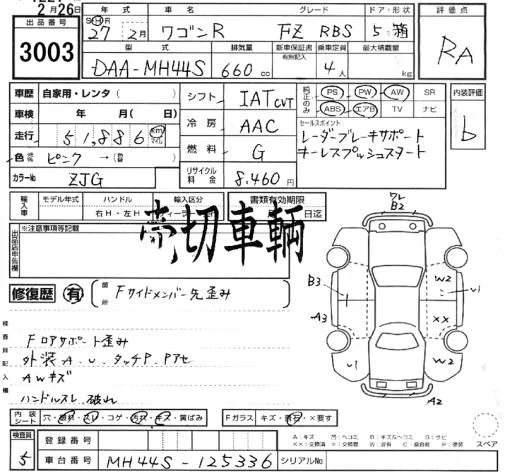 2月26日
出品番号
3003
年式
車名
グレード
ドア・形状
評価点
27 2月
ワゴンR
FZ RBS
5箱
RA
型式
排気量
新車保証書
有無記入
乗車定員
最大積載量
DAA-MH44S
660 cc
4人
kg
車歴 自家用・レンタ( )
車検 年 月( 日)
走行 51,886 km
色 ピンク →( )
カラーNo ZJG
シフト IAT CVT
冷房 AAC
燃料 G
リサイクル料金 8,460円
純正のみ PS PW AW SR
ABS エアB TV ナビ
セールスポイント
レーダーブレーキサポート
キーレスプッシュスタート
内装評価
b
輸入車
モデル年式
ハンドル
右H・左H
輸入区分
ディーラー
書類有効期限
日迄
売切車輌
※注意事項等記載
出品店申告欄
修復歴 有
箇所
Fサイドメンバー先歪み
検査員記入欄
Fロアサポート歪み
外装A.U.タッチP.Pアセ
AWキズ
ハンドルスレ 破れ
ワレ
B2
B3
A3
W2
U1
XX
U1
W2
A2
内装シート 穴・・スレ・コゲ・汚れ・キズ・黄ばみ
Fガラス キズ・飛石・×要す
スペア
検査員
5
登録番号
車台番号
MH44S-125336
シリアルNo